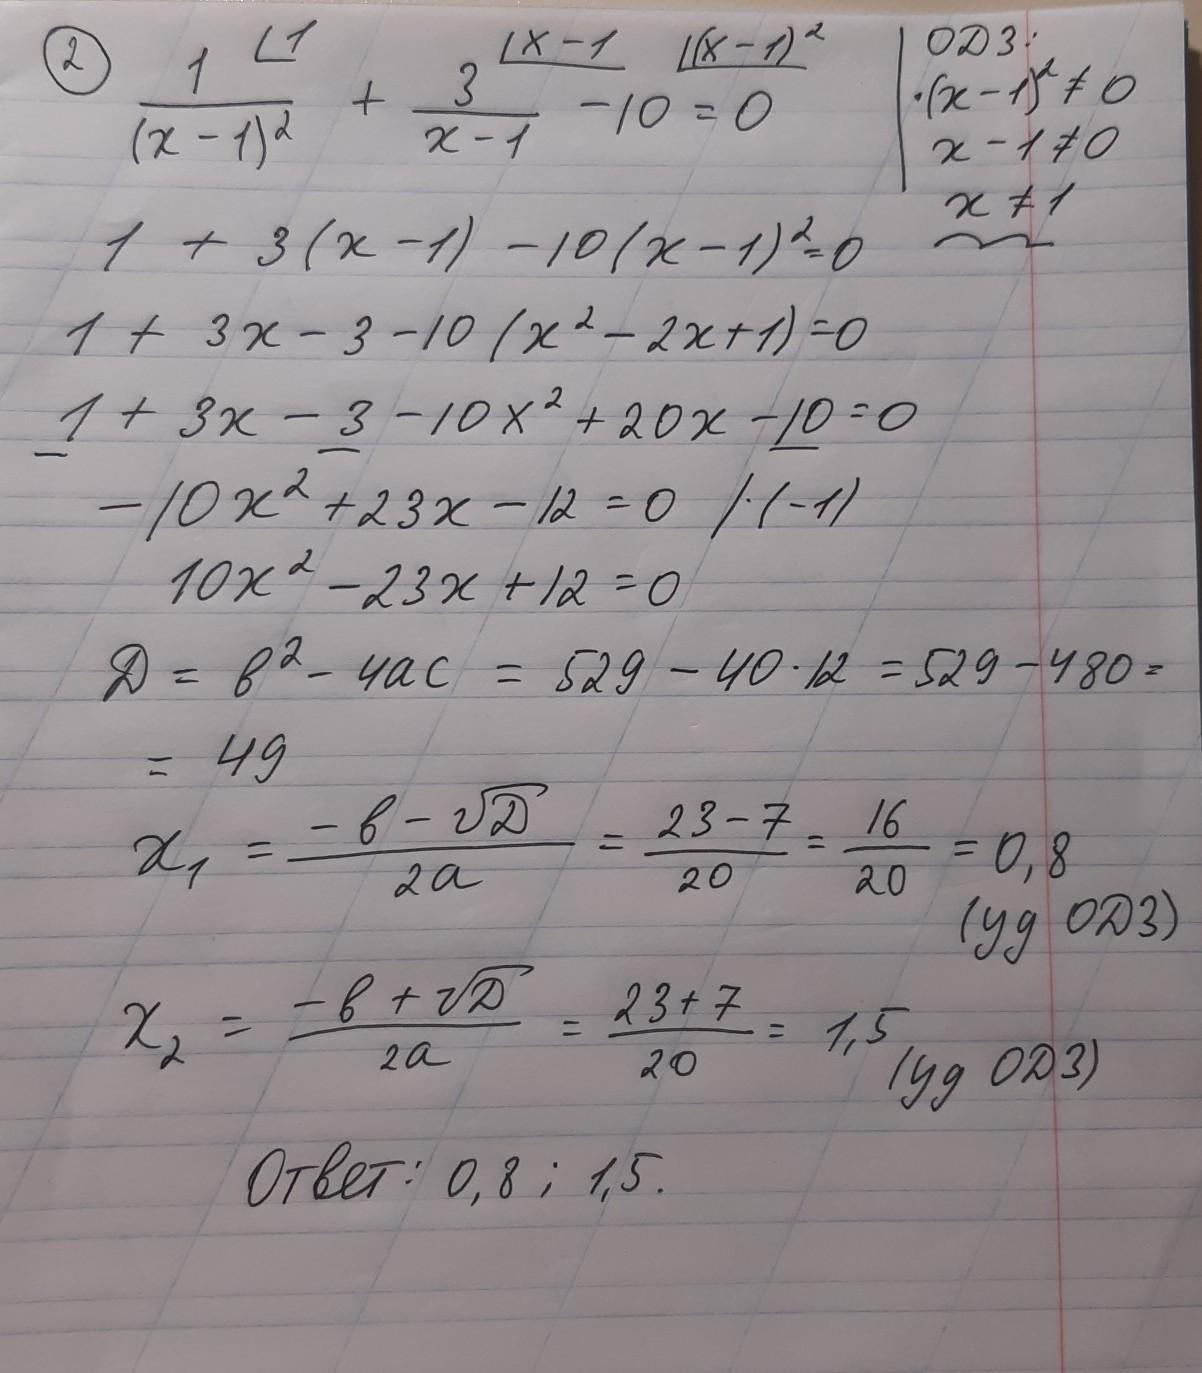 2
1 ⌊1 ⌊x-1 ⌊(x-1)²
1/(x-1)² + 3/(x-1) -10=0
ОДЗ:
·(x-1)² ≠ 0
x-1≠0
x≠1
1 + 3(x-1) -10(x-1)²=0
1 + 3x-3-10(x²-2x+1)=0
1 + 3x-3-10x²+20x-10=0
-10x²+23x-12=0 |·(-1)
10x²-23x+12=0
Д = в²-4ас = 529-40·12=529-480=
= 49
x₁ = (-в-√Д)/2а = (23-7)/20 = 16/20 = 0,8
(уд ОДЗ)
x₂ = (-в+√Д)/2а = (23+7)/20 = 1,5
(уд ОДЗ)
Ответ: 0,8; 1,5.